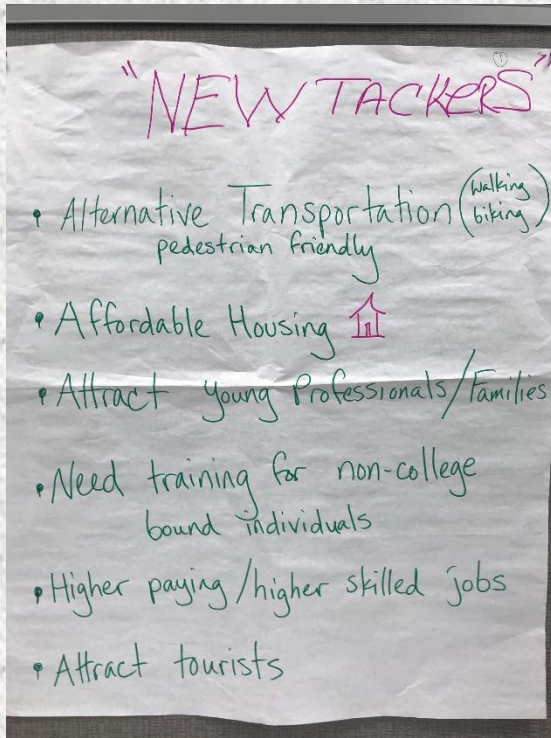 ①
"NEW TACKERS"
• Alternative Transportation (walking
biking)
pedestrian friendly
• Affordable Housing
• Attract Young Professionals/Families
• Need training for non-college
bound individuals
• Higher paying/higher skilled jobs
• Attract tourists